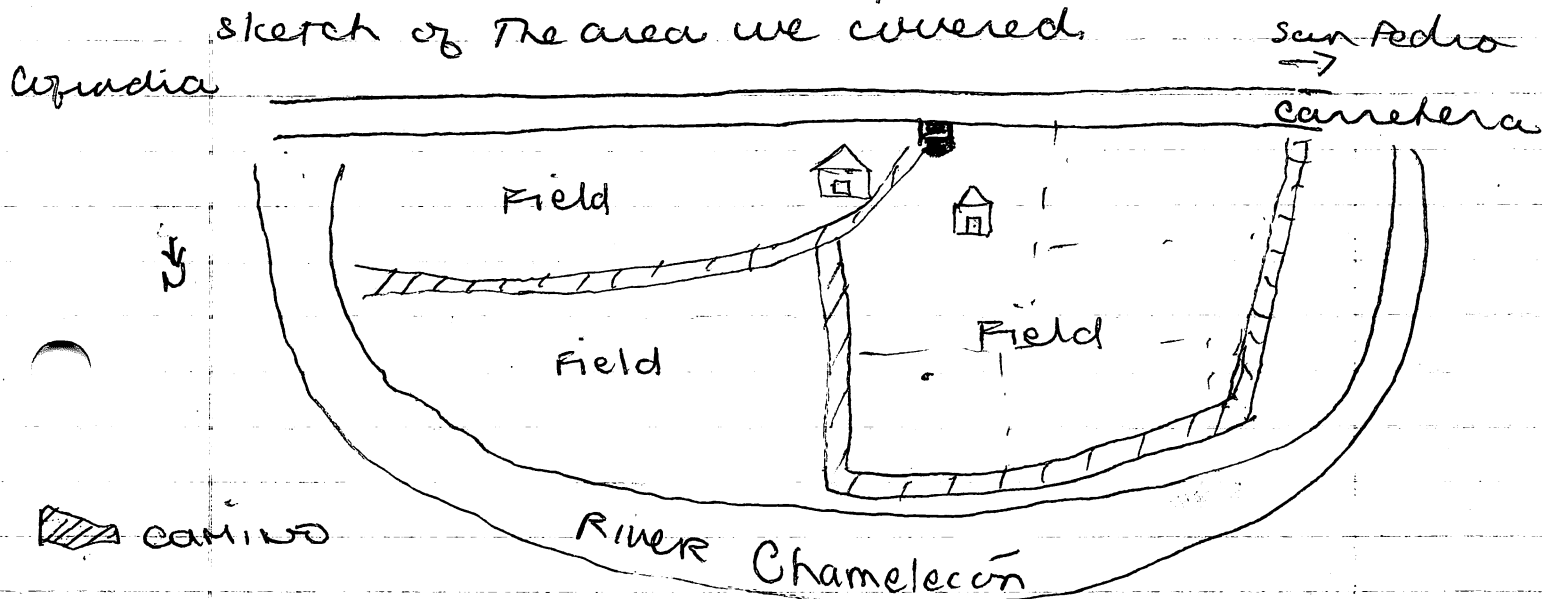 sketch of The area we covered.
San Pedro
→
Cofradia
carretera
Field
Field
Field
N
CAMINO
RIVER Chamelecón